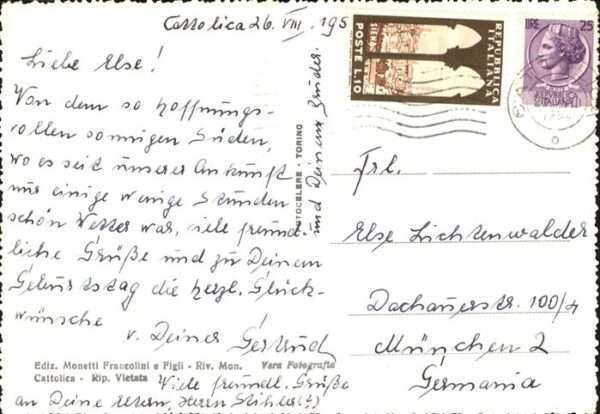 Cattolica 26. VIII. 195
Liebe Else!
Von dem so hoffnungs-
vollen sonnigen Süden,
wo es seit unserer Ankunft
nur einige wenige Stunden
schön Wetter war, viele freund-
liche Grüße und zu Deinem
Geburtstag die herzl. Glück-
wünsche
v. Deiner Gertrud
Ediz. Monetti Francolini e Figli - Riv. Mon. Vera Fotografia
Cattolica - Rip. Vietata
Viele freundl. Grüße
an Deine Eltern, Herrn Stihler(?)
und Deinem Bruder.
FOTOCELERE - TORINO
POSTE L.10
REPUBBLICA
ITALIANA
SIENA
LIRE 25
Frl.
Else Lichtenwalder
Dachauerstr. 100/4
München 2
Germania